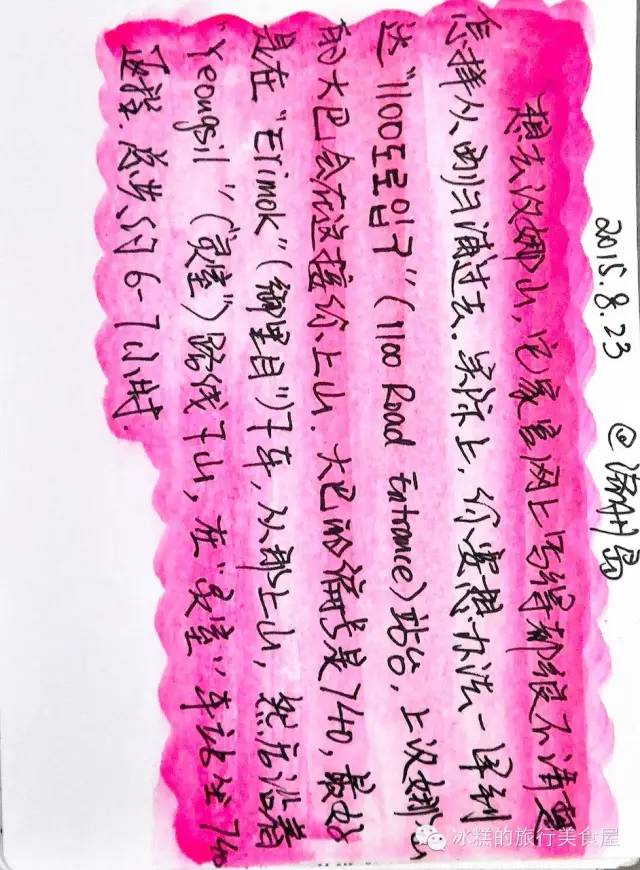 2015.8.23 @济州岛
想去汉娜山,它家官网上写得都很不清楚
怎样从西归浦过去.实际上,你要想办法一到
达"1100도로입구"(1100 Road Entrance)站台,上汉娜山
的大巴会在这接你上山.大巴的编号是740,最好
是在"Erimok"(御里目")下车,从那上山,然后沿着
"Yeongsil"("灵室")路线下山,在"灵室"车站坐740
返程.总共约6-7小时.
冰糕的旅行美食屋